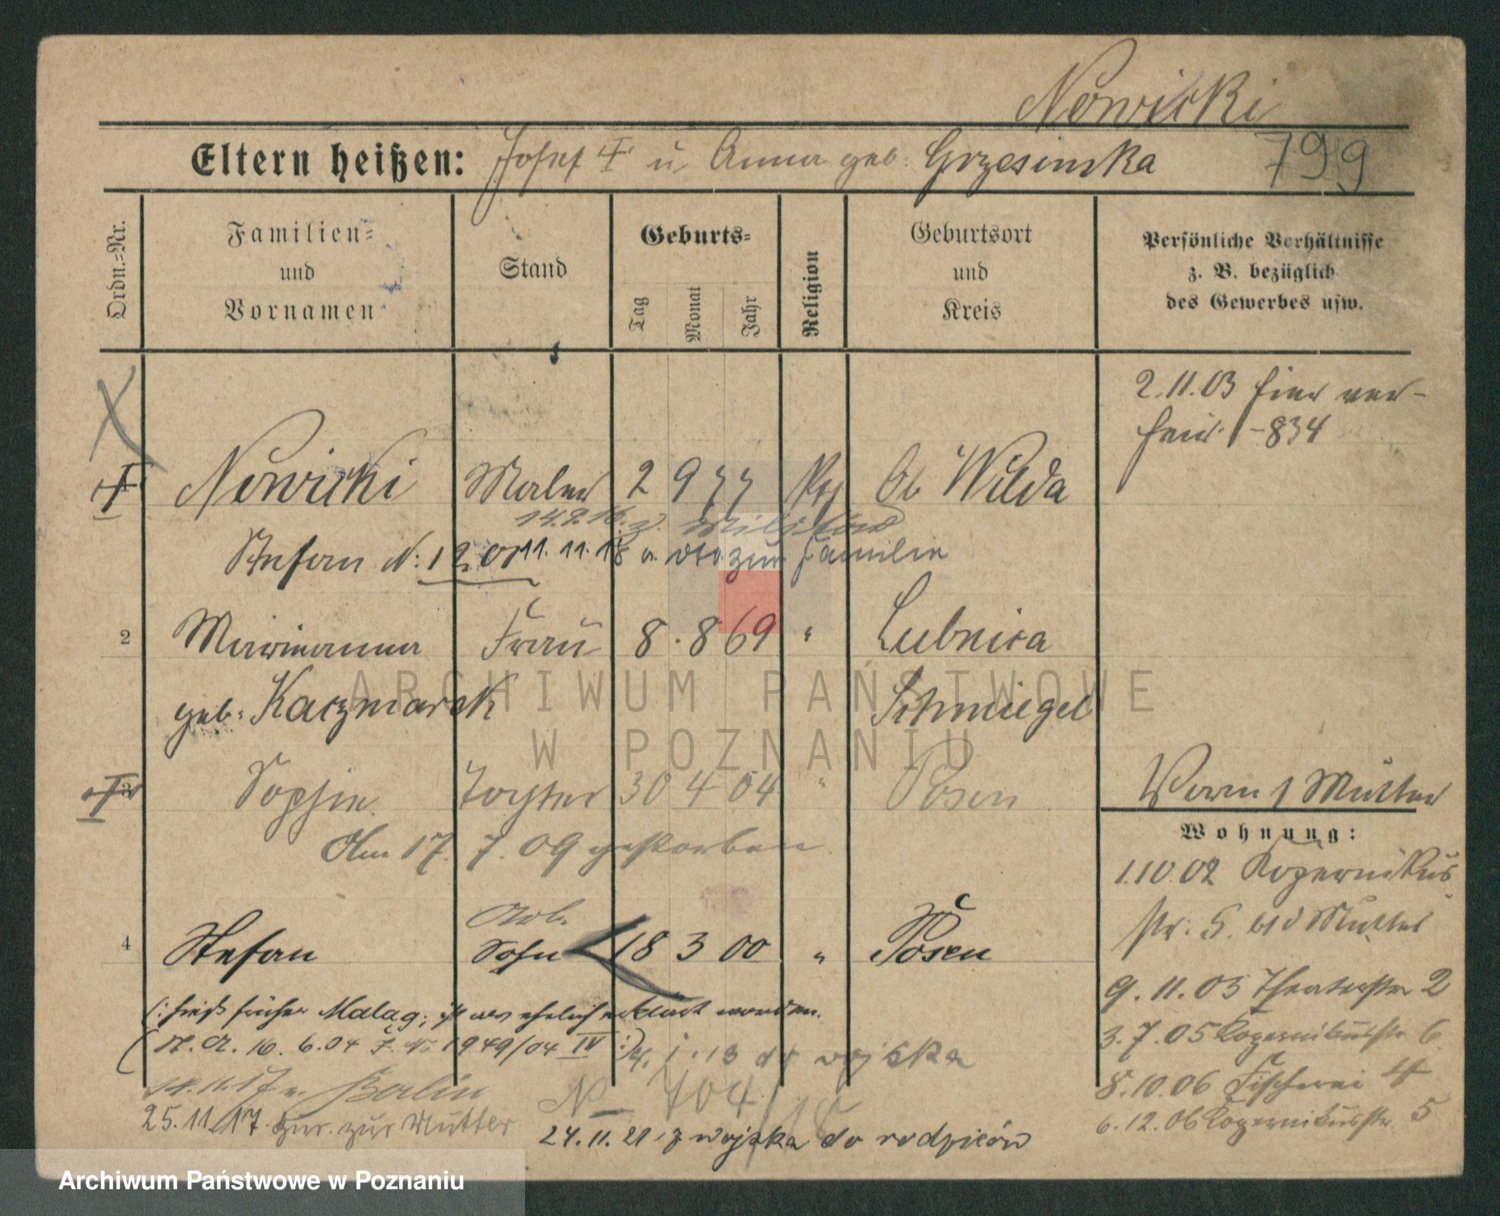 Nowicki
Eltern heißen: Josef † u. Anna geb. Grzesinska 799
Ordn.-Nr.
Familien- und Vornamen
Stand
Geburts-
Tag Monat Jahr
Religion
Geburtsort und Kreis
Persönliche Verhältnisse z. B. bezüglich des Gewerbes usw.
2.11.03 hier ver-
heir. 834
Nowicki Maler 2 9 77 Ob Wilda
14.9.16. z. Militär
Stefan 11.11.18 zur Familie
2 Marianna Frau 8. 8 69 " Lubnica
geb. Kaczmarek Schmiegel
3 Sophie Tochter 30 4 04 " Posen
Am 17. 7. 09 gestorben
4 Stefan Sohn 18 3 00 " Posen
(: hieß früher Malag; ist als ehelich erklärt worden.
16. 6.04 J. N. 1949/04 IV :)
do wojska
v. Berlin
25.11.17. zur. zur Mutter
N 704/18
24.11.21 z wojska do rodziców
Vorm. Mutter
Wohnung:
1.10.02 Kopernikus
str. 5. bei Mutter
9.11.03 Theaterstr 2
3.7.05 Kopernikusstr 6
8.10.06 Fischerei 4
6.12.06 Kopernikusstr. 5
ARCHIWUM PAŃSTWOWE
W POZNANIU
Archiwum Państwowe w Poznaniu